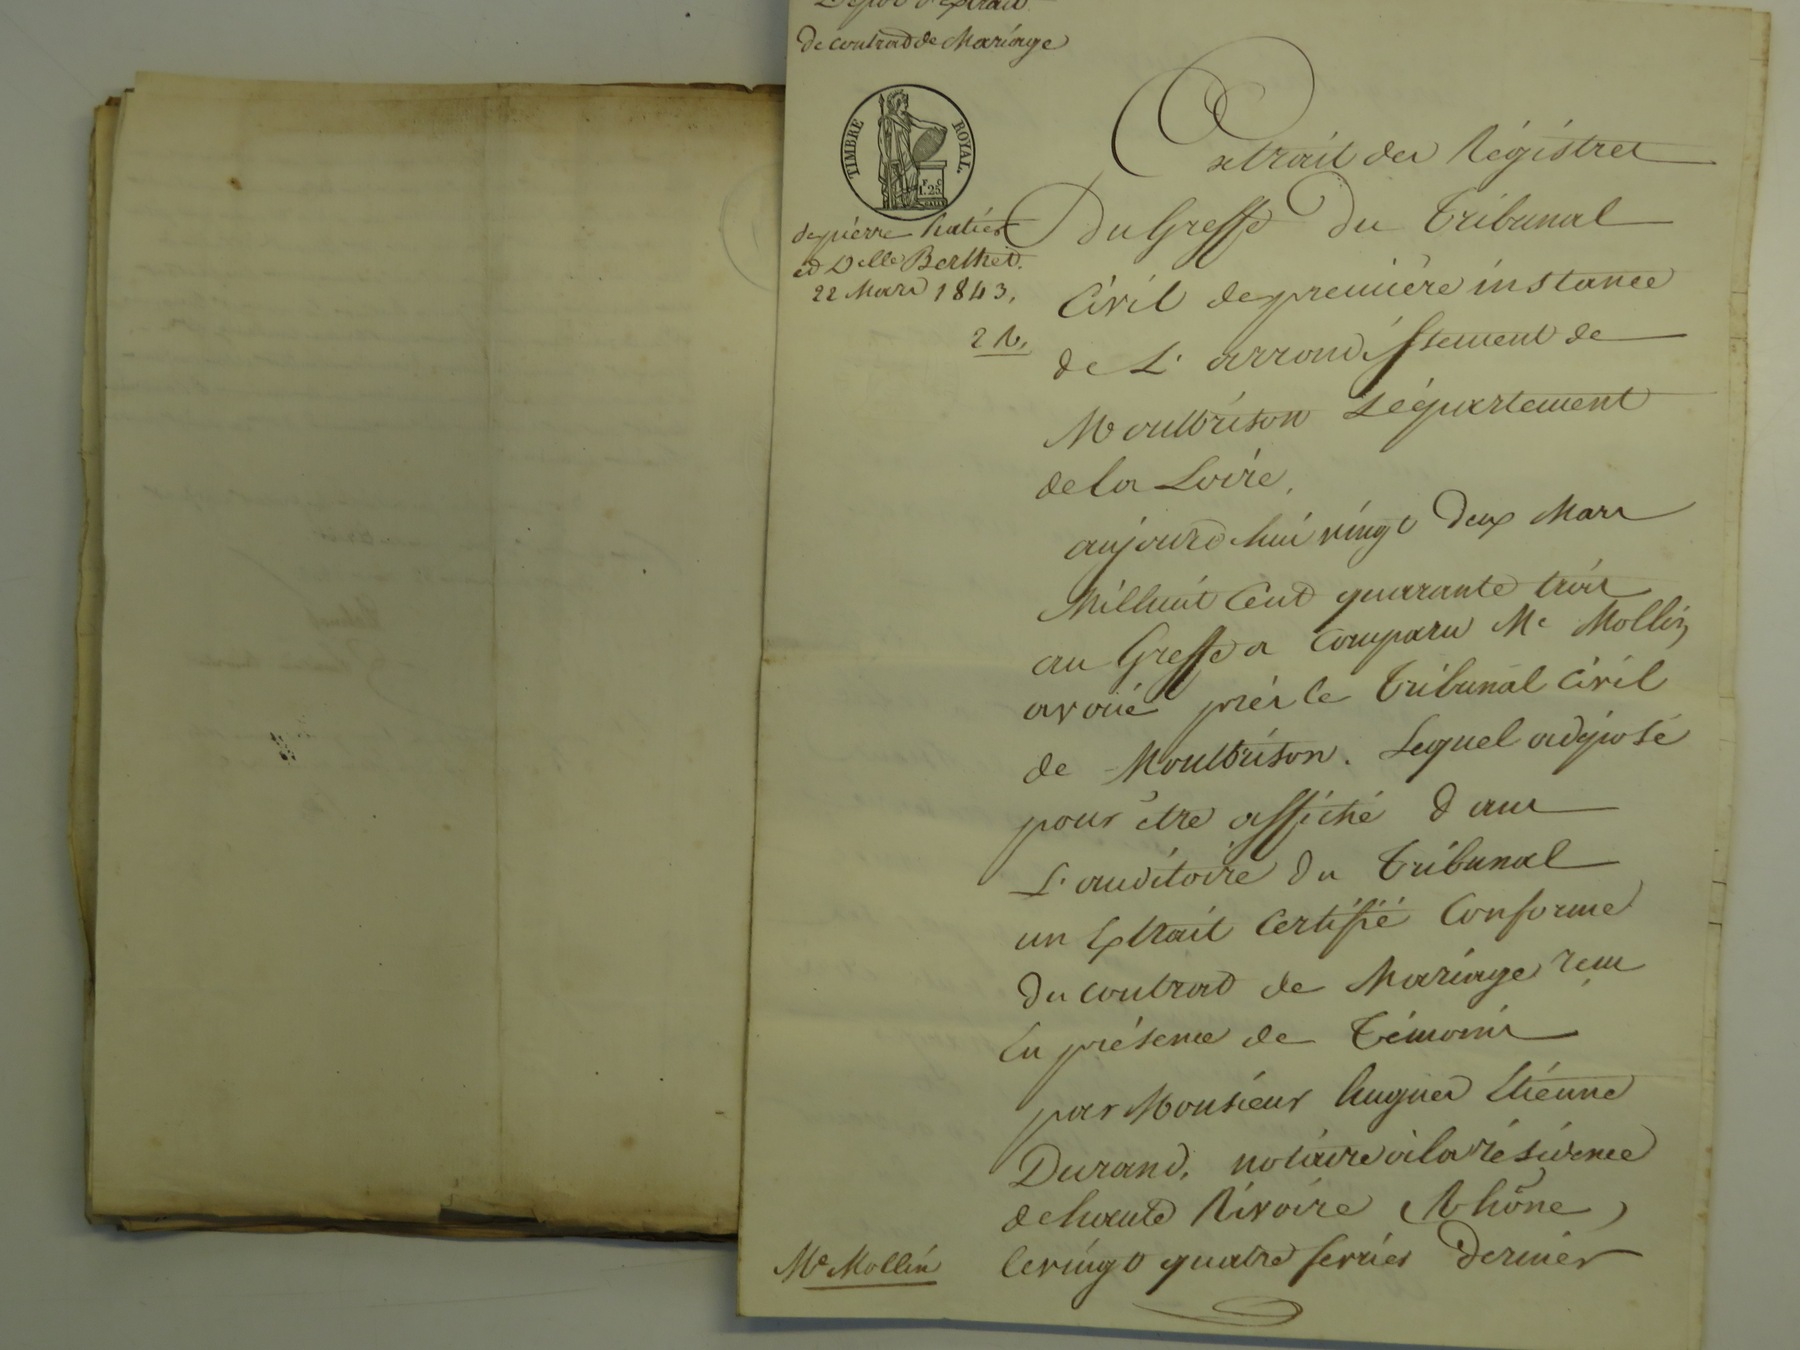 Dépôt d'Extrait
de contrat de Mariage
TIMBRE ROYAL.
F. C.
1. 25.
de pierre
et Delle Berthet.
22 Mars 1843.
Extrait des Régistres
Du Greffe Du Tribunal
Civil de première instance
de L'arrondissement de
Montbrison Département
de la Loire.
aujourd'hui vingt Deux Mars
Mil huit Cent quarante trois
au Greffe a Comparu Me Mollin
avoué près le Tribunal Civil
de Montbrison. Lequel a déposé
pour être affiché dans
L'auditoire du Tribunal
un Extrait Certifié Conforme
Du contrat de Mariage reçu
En présence de Témoins
par Monsieur hugues Etienne
Durand, notaire à la résidence
de haute Rivoire (Rhône)
le vingt quatre fevrier Dernier
Me Mollin